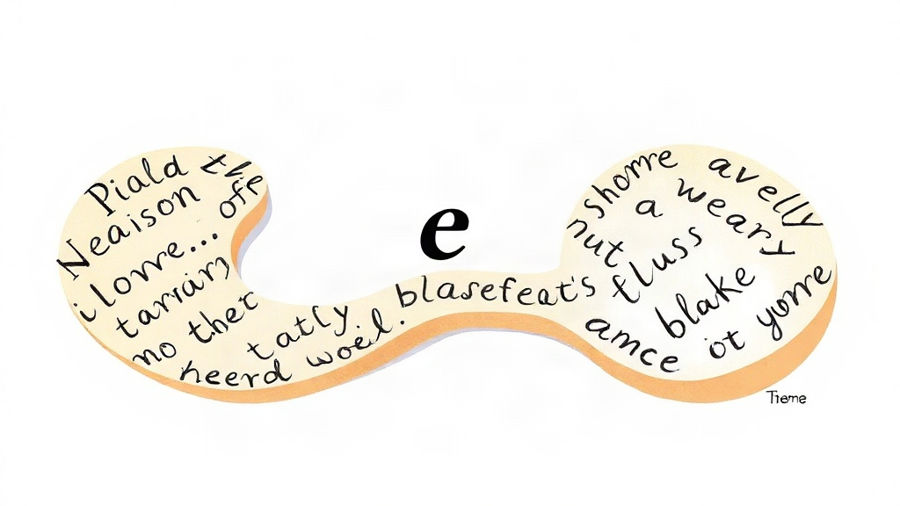 Piald the
Neaison ofe
i lovre...
tarriarn
no thet
tatly.
heerd woeil.
e
blasefeat's
shorre avelly
a weary
nut fluss
blake
amce iot yorre
Tieme